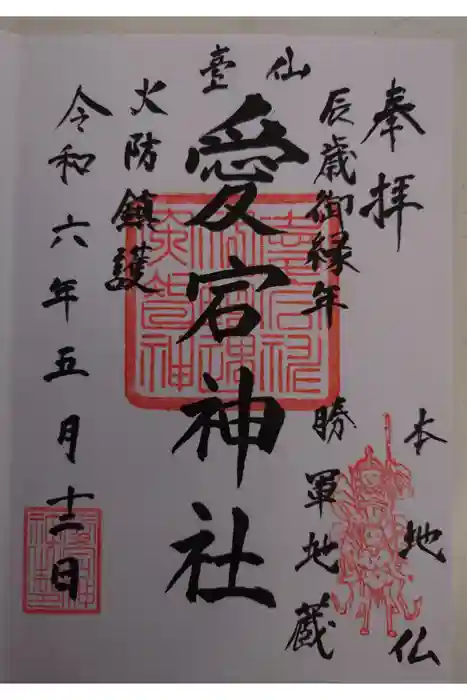 奉拝
本地仏
辰歳御縁年
勝軍地蔵
仙臺
愛宕神社
火防鎮護
令和六年五月十二日